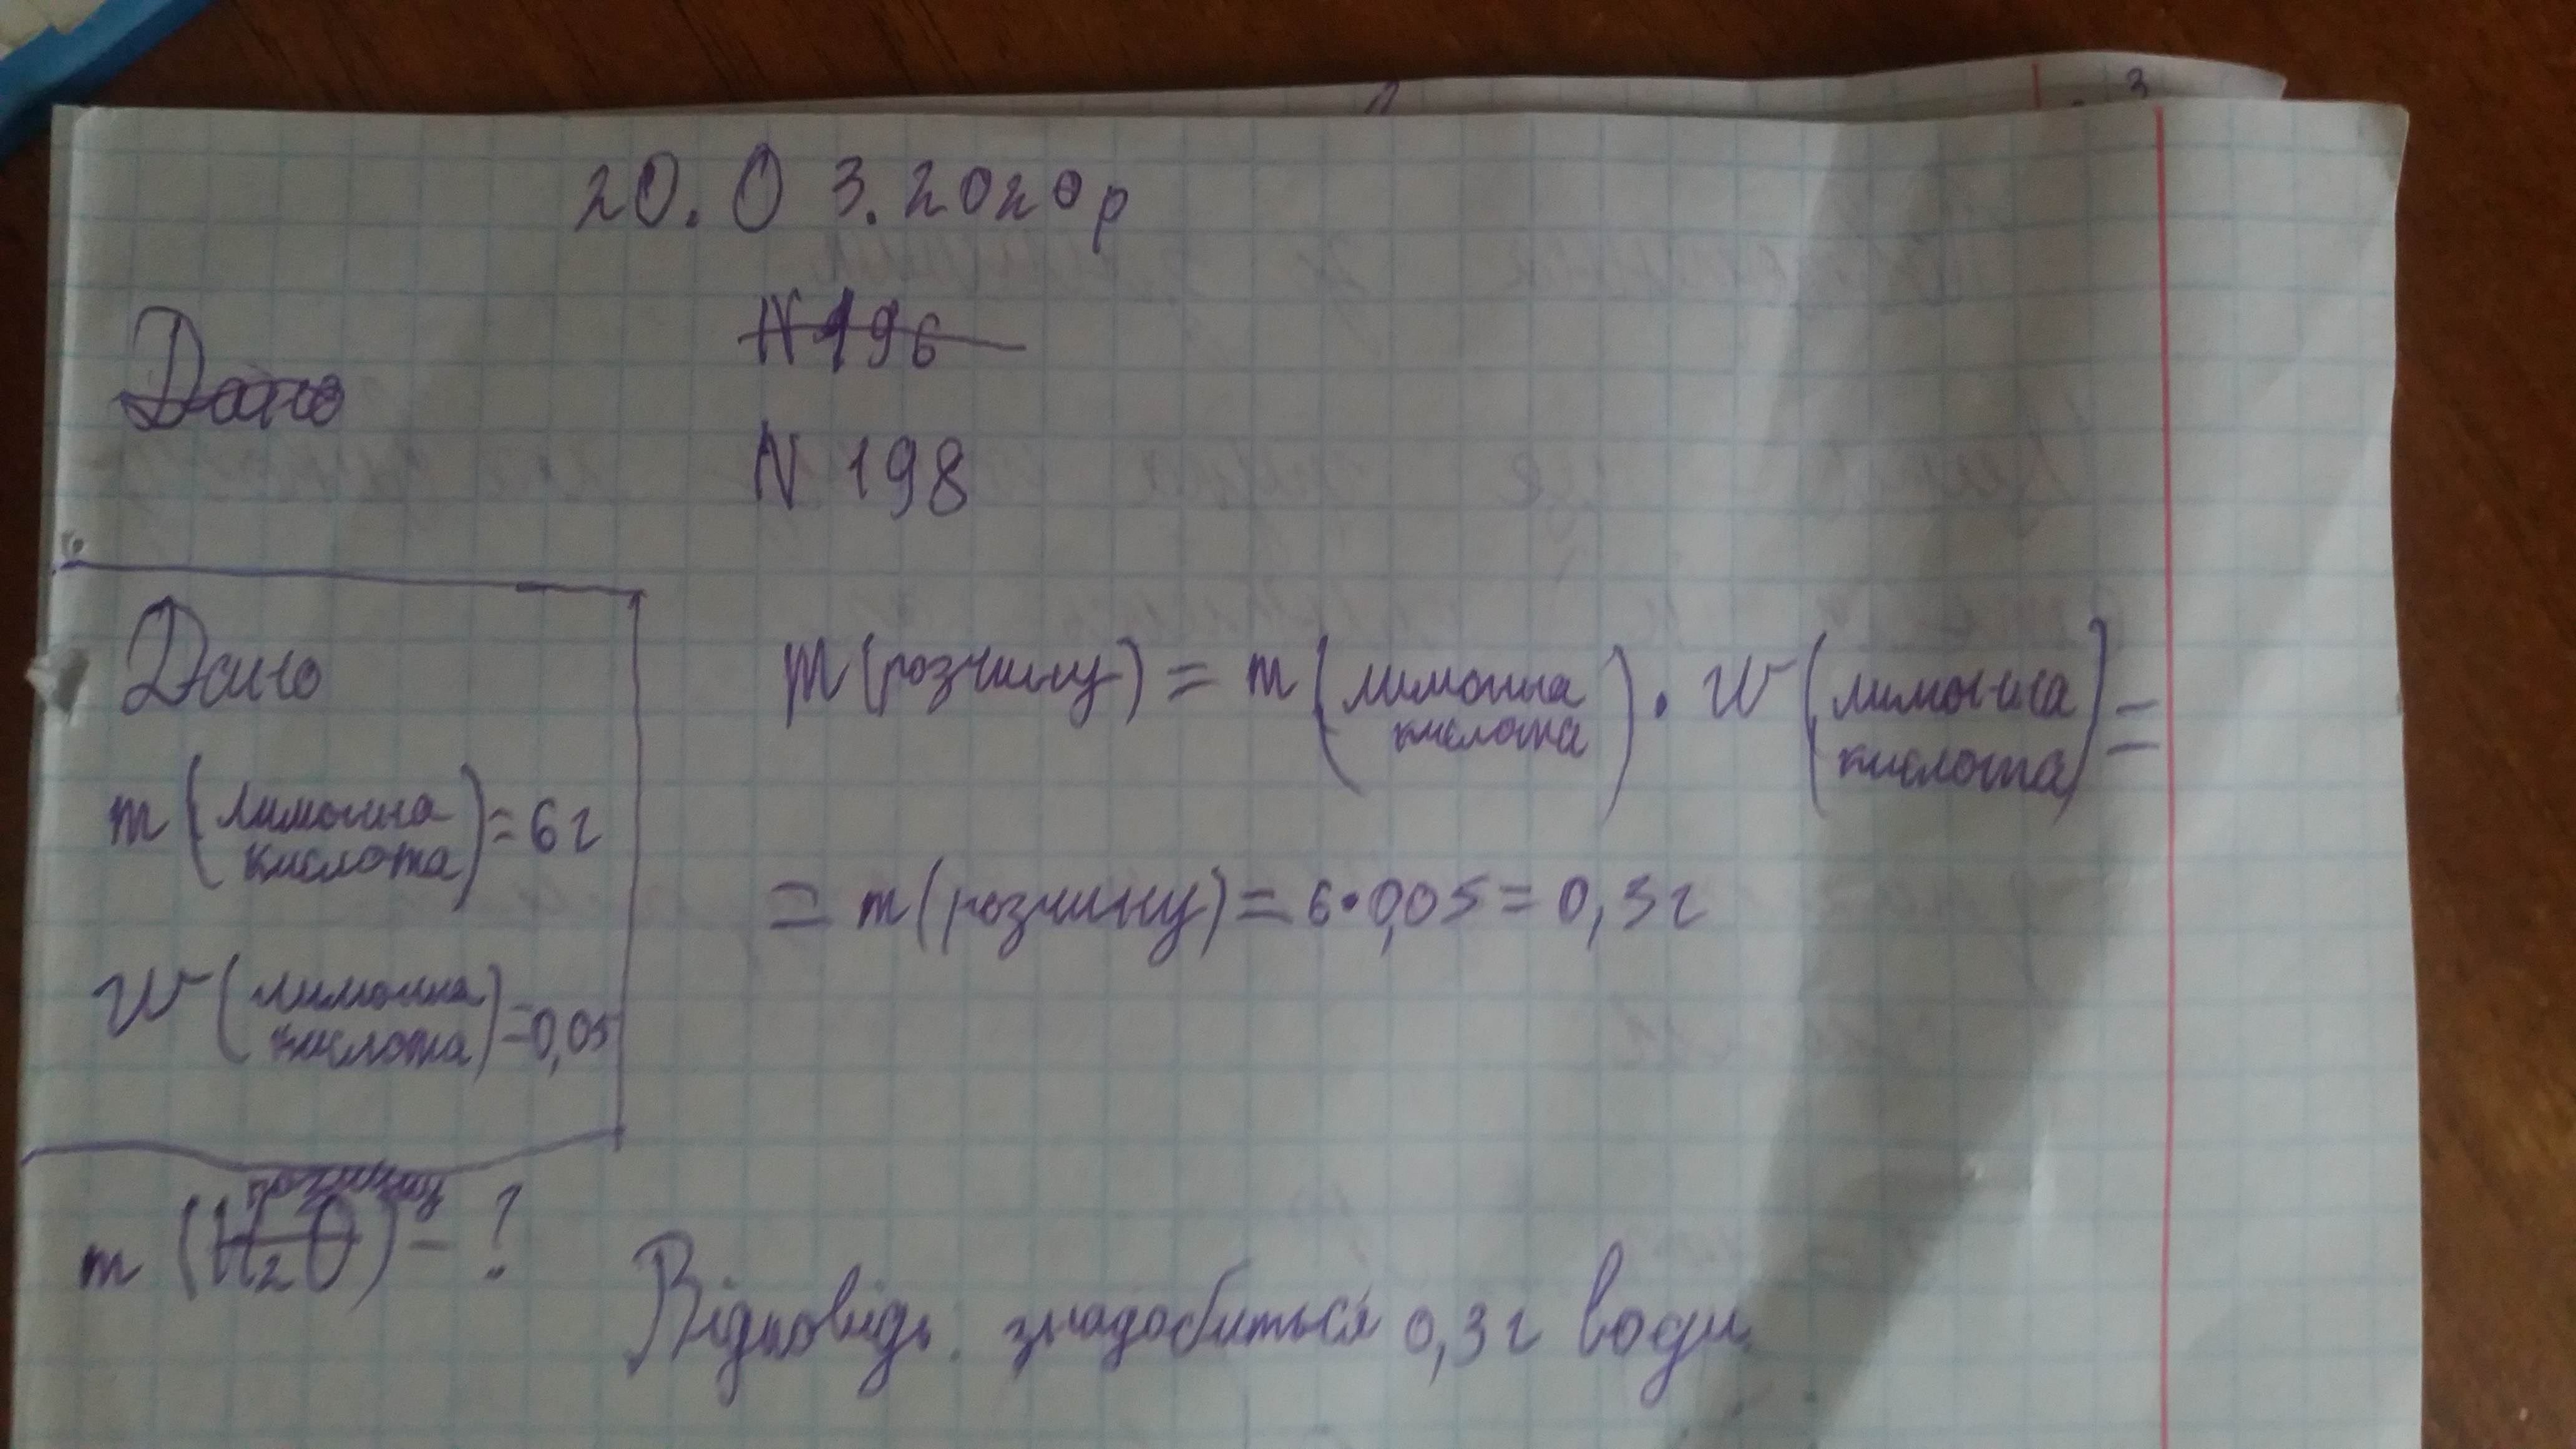 3
20.03.2020р
N 196
Дано
N 198
Дано
m (лимонна кислота) = 6 г
W (лимонна кислота) = 0,05
m (розчину) = m (лимонна кислота) · W (лимонна кислота) =
= m (розчину) = 6 · 0,05 = 0,3 г
розчину
m (H2O) - ?
Відповідь: знадобиться 0,3 г води